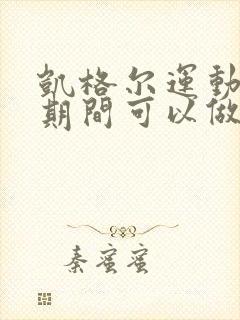 凱格尔運動
期間可以做
秦蜜蜜